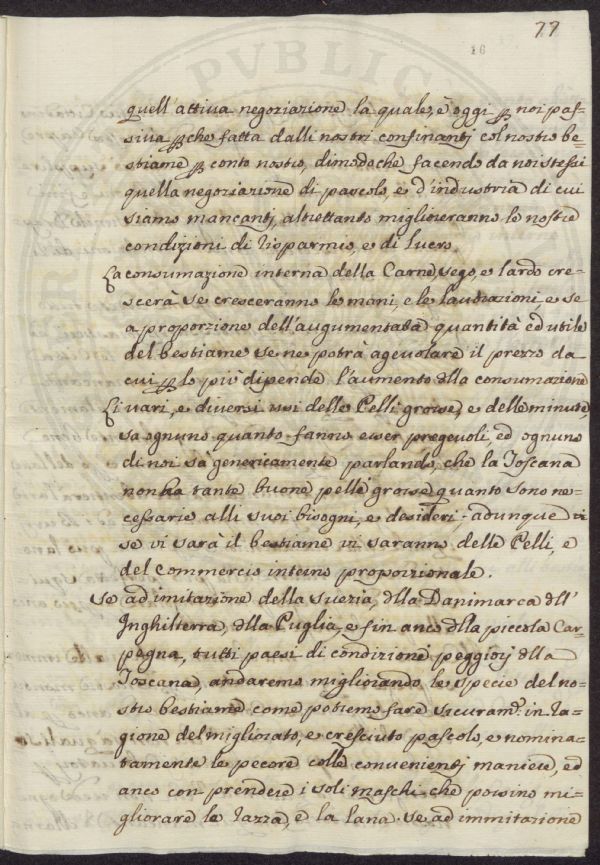 77
16
quell'attiva negoziazione la quale, è oggi p noi pas=
siva, pche fatta dalli nostri confinantj col nostro be=
stiame p conto nostro, dimodoche facendo da noi stessi
quella negoziazione di pascolo, e d'industria di cui
siamo mancantj, altrettanto miglioreranno le nostre
condizioni di risparmio, e di lucro.
La consumazione interna della Carne, sego, e lardo cre=
scerà se cresceranno le mani, e le lavorazioni, e se
a proporzione dell'augumentata quantità ed utile
del bestiame se ne potrà agevolare il prezzo da
cui p lo più dipende l'aumento dlla consumazione
Li varj, e diversi usi delle Pelli grosse, e delle minute,
sa ognuno quanto fanno esser pregevoli, ed ognuno
di noi sà genericamente parlando, che la Toscana
non ha tante buone pelle grosse quanto sono ne=
cessarie alli suoi bisogni, e desiderj. adunque
se vi sarà il bestiame vi saranno delle Pelli, e
del Commercio interno proporzionale.
Se ad imitazione della Svezia, dlla Danimarca dll'
Inghilterra, dlla Puglia, e fin anco dlla piccola Car=
pegna, tutti paesi di condizione peggiorj dlla
Toscana, andaremo migliorando le specie del no=
stro bestiame come potremo fare sicuram.e in ra=
gione del migliorato, e cresciuto pascolo, e nomina=
tamente le pecore colle convenientj maniere, ed
anco con prendere i soli maschi che possino mi=
gliorare la razza, e la lana. Se ad immitazione